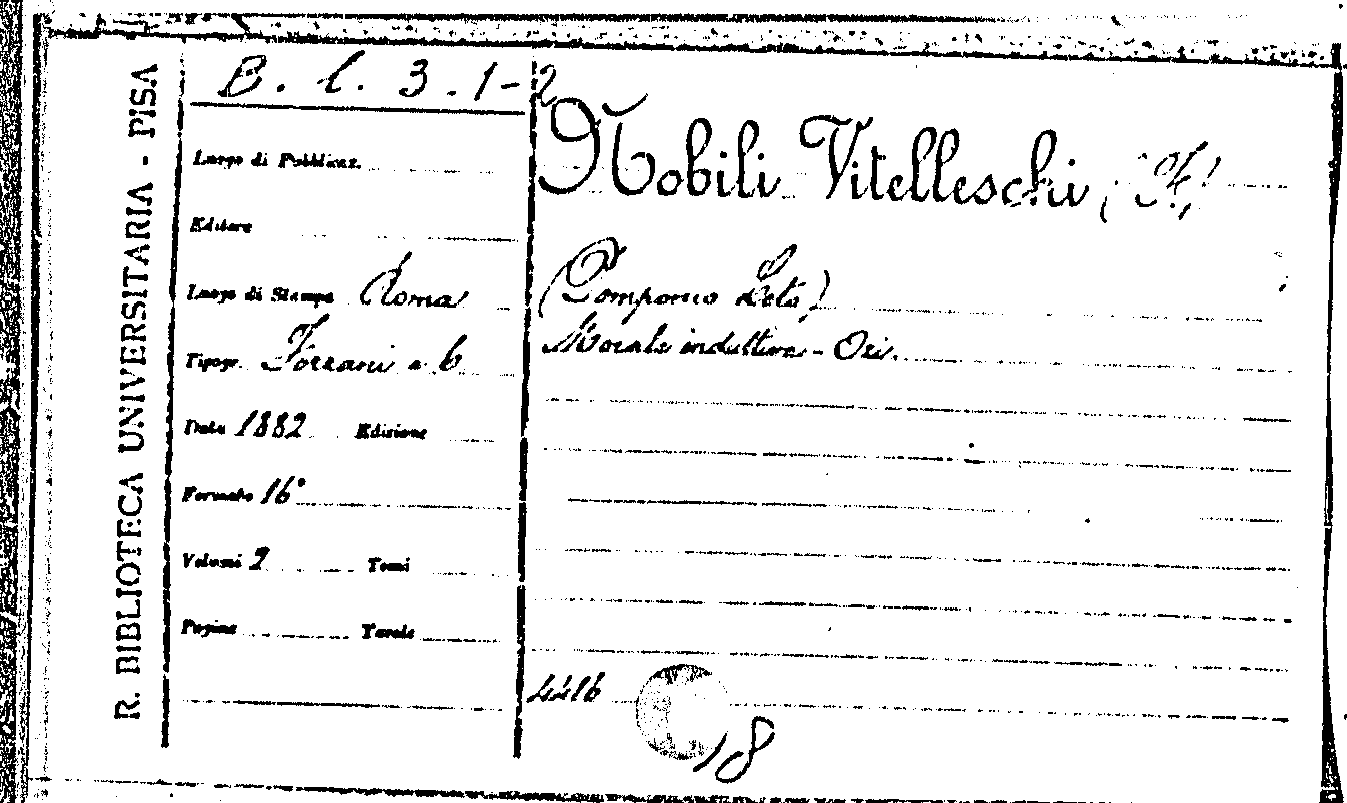 R. BIBLIOTECA UNIVERSITARIA - PISA
B. l. 3. 1-2
Luogo di Pubblicaz.
Editore
Luogo di Stampa Roma
Tipogr. Forzani e C
Data 1882 Edizione
Formato 16°
Volumi 2 Tomi
Pagine Tavole
Nobili Vitelleschi (F.)
(Pomponio Leto)
Morale induttiva -
4416
18